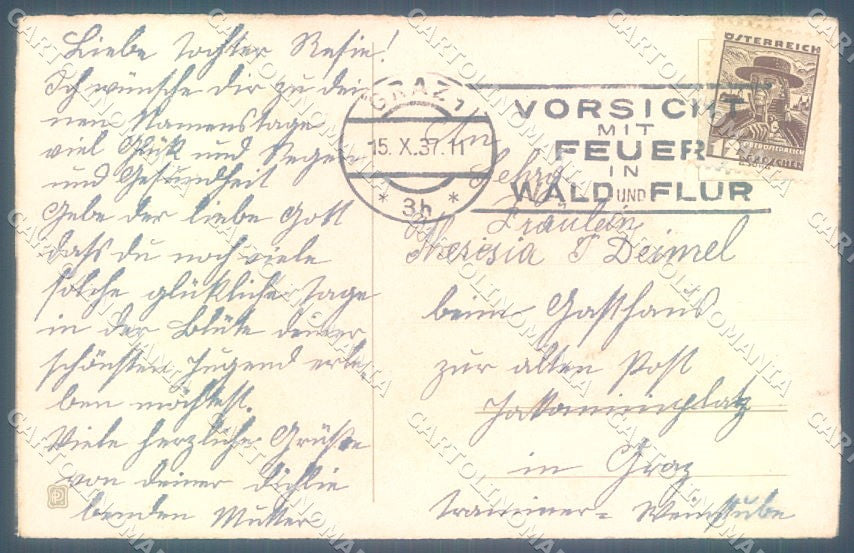 Liebe Tochter Resie!
Ich wünsche dir zu dei-
nen Namenstage
viel Glük und Segen
und Gesundheit
Gebe der liebe Gott
dass du noch viele
solche glükliche Tage
in der Blüte deiner
schönsten Jugend erle
ben möchtest.
Viele herzliche Grüsse
von deiner dichlie
benden Mutter
GRAZ 1
15. X. 37. 11
* 3h *
VORSICHT
MIT
FEUER
IN
WALD UND FLUR
ÖSTERREICH
12 GROSCHEN
An
Fräulein
Theresia Deimel
beim Gasthaus
zur alten Post
Jakominiplatz
in Graz
Traminer= Weinstube
CARTOLINOMANIA